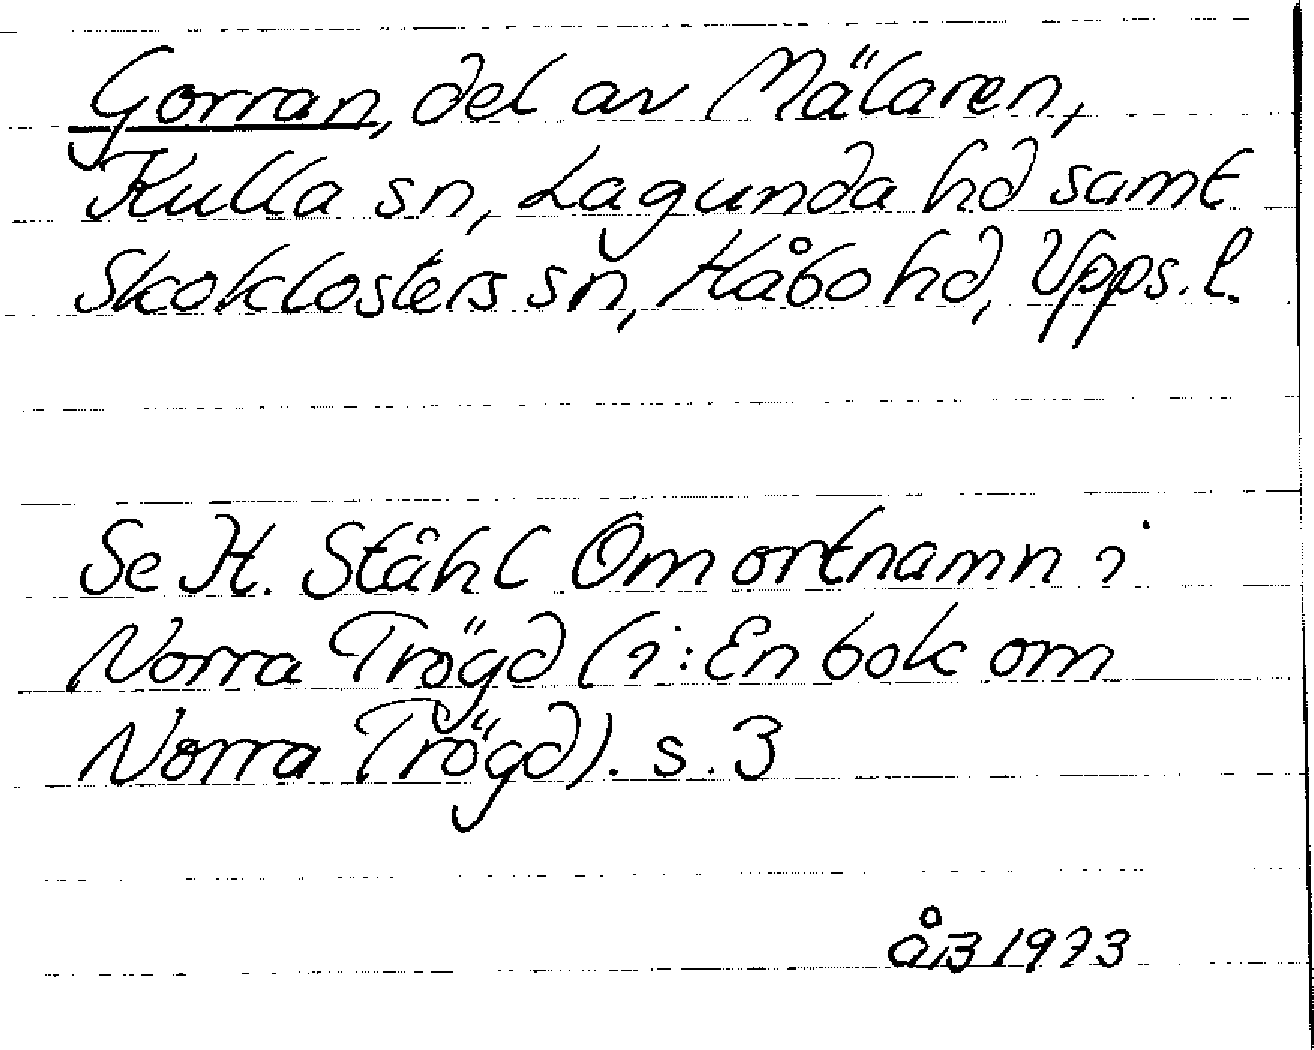 Gorran, del av Mälaren,
Kulla sn, Lagunda hd samt
Skoklosters sn, Håbo hd, Upps. l.
Se H. Ståhl Om ortnamn i
Norra Trögd (i: En bok om
Norra Trögd). s. 3
åB 1973